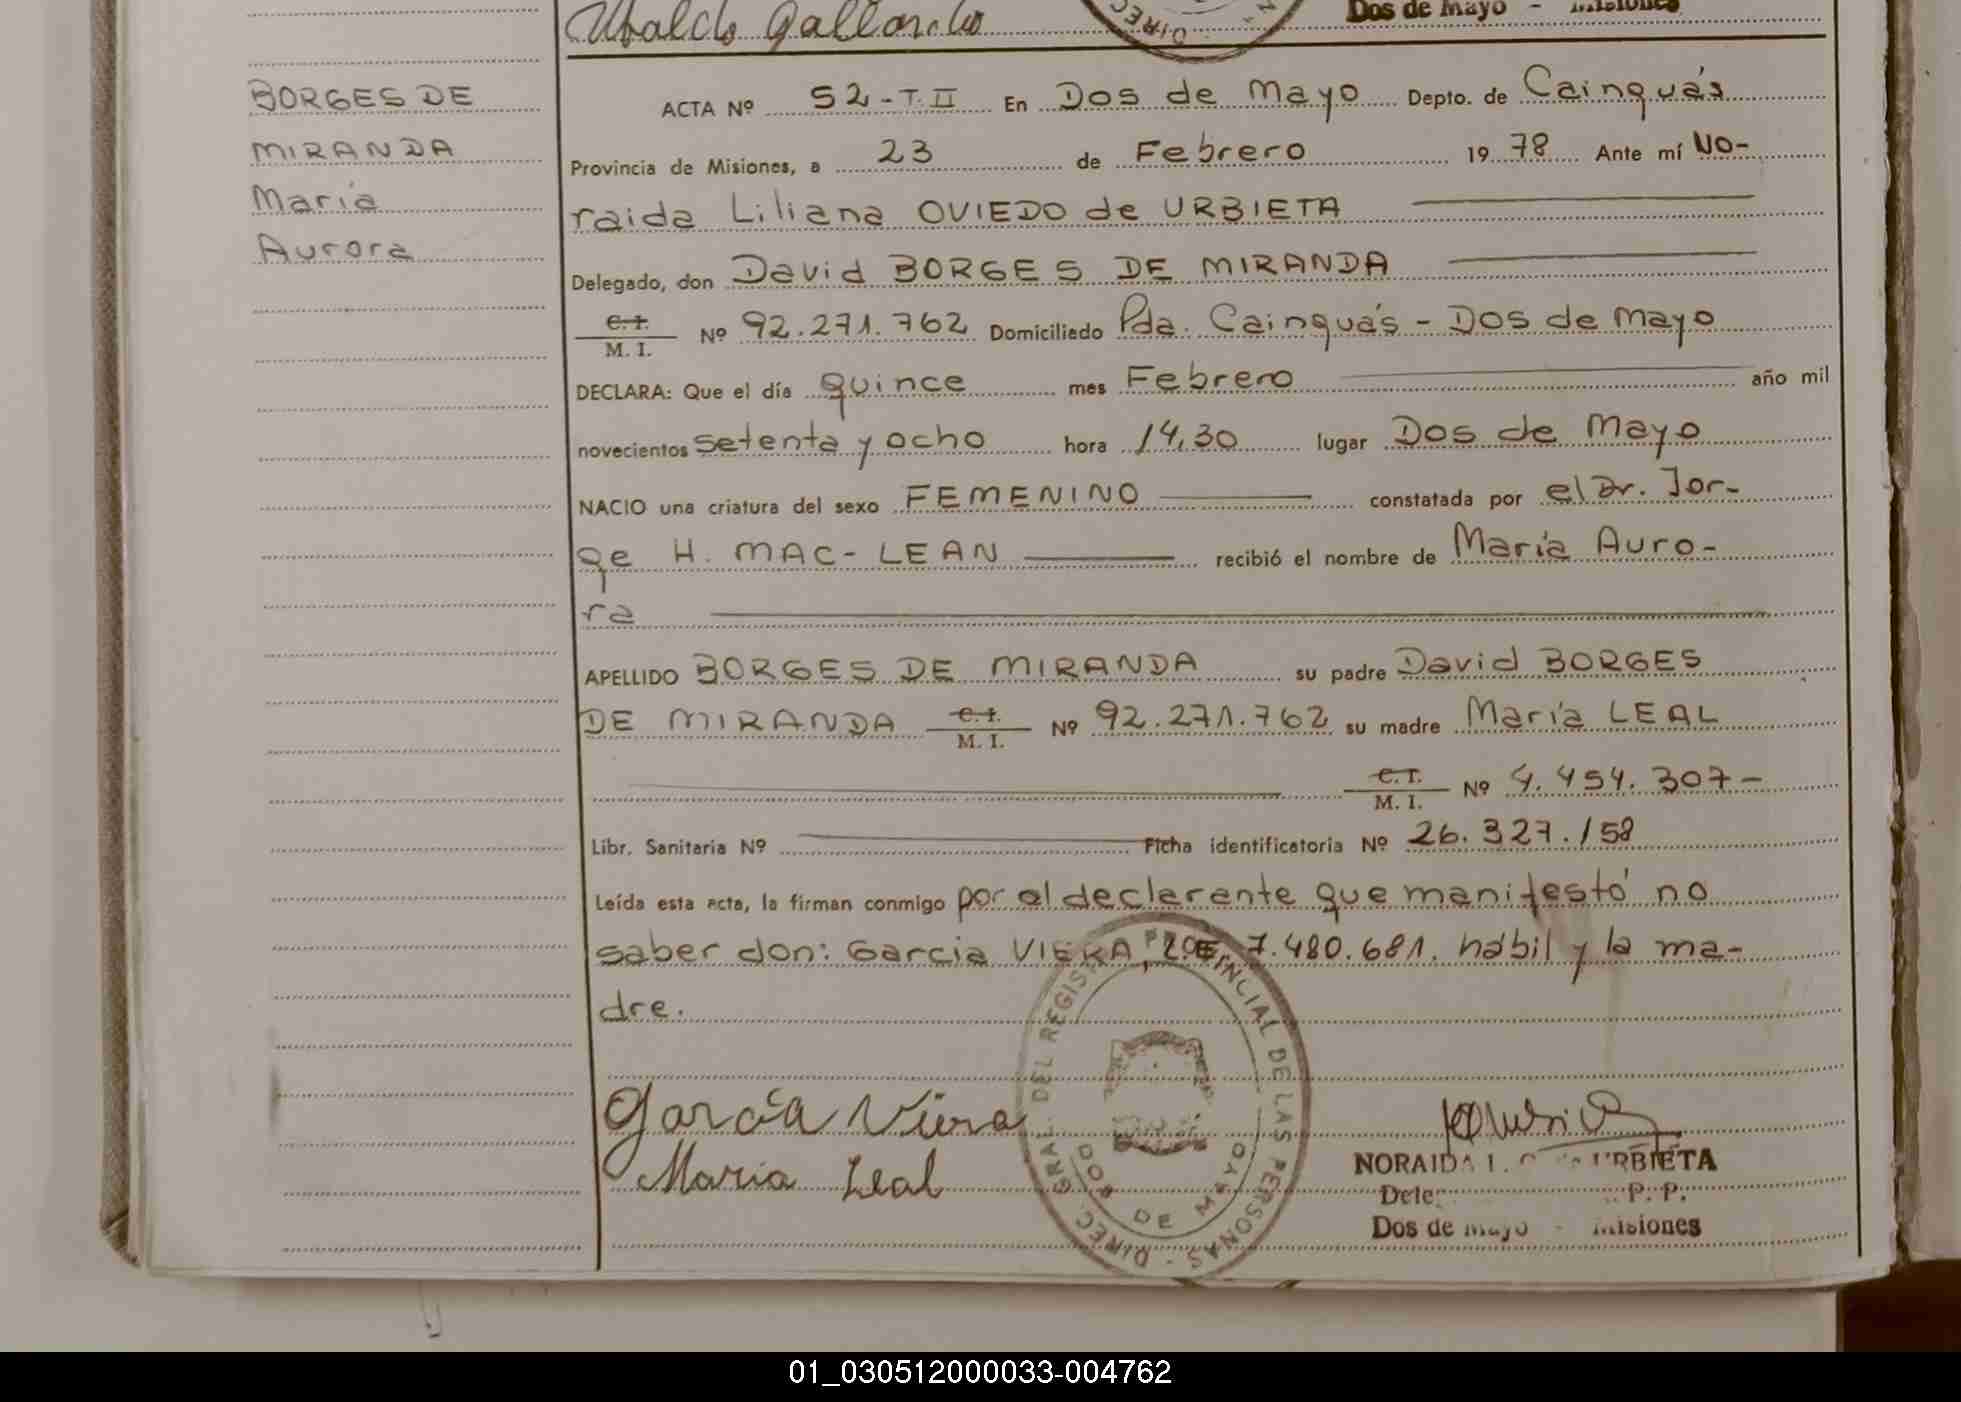 Ubaldo Gallardo
Dos de Mayo - Misiones
BORGES DE
MIRANDA
María
Aurora
ACTA Nº 52-T.II En Dos de Mayo Depto. de Cainguás
Provincia de Misiones, a 23 de Febrero 1978 Ante mí No-
raida Liliana OVIEDO de URBIETA
Delegado, don David BORGES DE MIRANDA
C.I. / M. I. Nº 92.271.762 Domiciliado Pda. Cainguás - Dos de Mayo
DECLARA: Que el día quince mes Febrero año mil
novecientos setenta y ocho hora 14,30 lugar Dos de Mayo
NACIO una criatura del sexo FEMENINO constatada por el Dr. Jor-
ge H. MAC-LEAN recibió el nombre de María Auro-
ra
APELLIDO BORGES DE MIRANDA su padre David BORGES
DE MIRANDA C.I. / M. I. Nº 92.271.762 su madre María LEAL
C.I. / M. I. Nº 4.454.307-
Libr. Sanitaria Nº Ficha identificatoria Nº 26.327./58
Leída esta acta, la firman conmigo por el declarante que manifestó no
saber don: Garcia VIERA, L.E. 7.480.681. hábil y la ma-
dre.
García Viera
Maria Leal
DIREC. GRAL. DEL REGISTRO PROVINCIAL DE LAS PERSONAS
DOS DE MAYO
NORAIDA L. O. de URBIETA
Dele P. P.
Dos de Mayo - Misiones
01_030512000033-004762